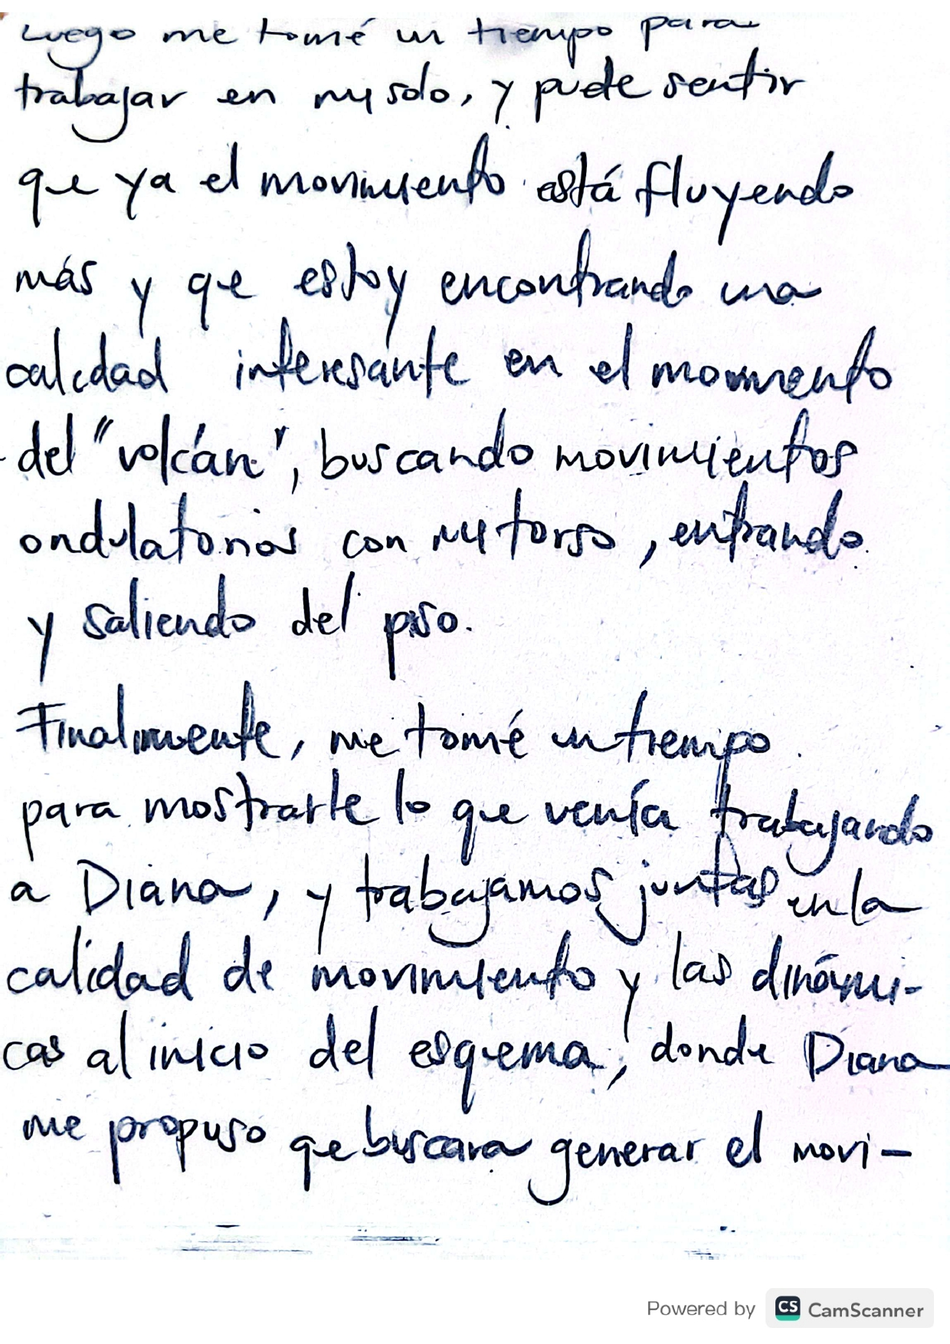 Luego me tomé un tiempo para
trabajar en mi solo, y pude sentir
que ya el movimiento está fluyendo
más y que estoy encontrando una
calidad interesante en el momento
del "volcán", buscando movimientos
ondulatorios con mi torso, entrando
y saliendo del piso.
Finalmente, me tomé un tiempo
para mostrarle lo que venía trabajando
a Diana, y trabajamos juntas en la
calidad de movimiento y las dinámi-
cas al inicio del esquema, donde Diana
me propuso que buscara generar el movi-
Powered by CS CamScanner